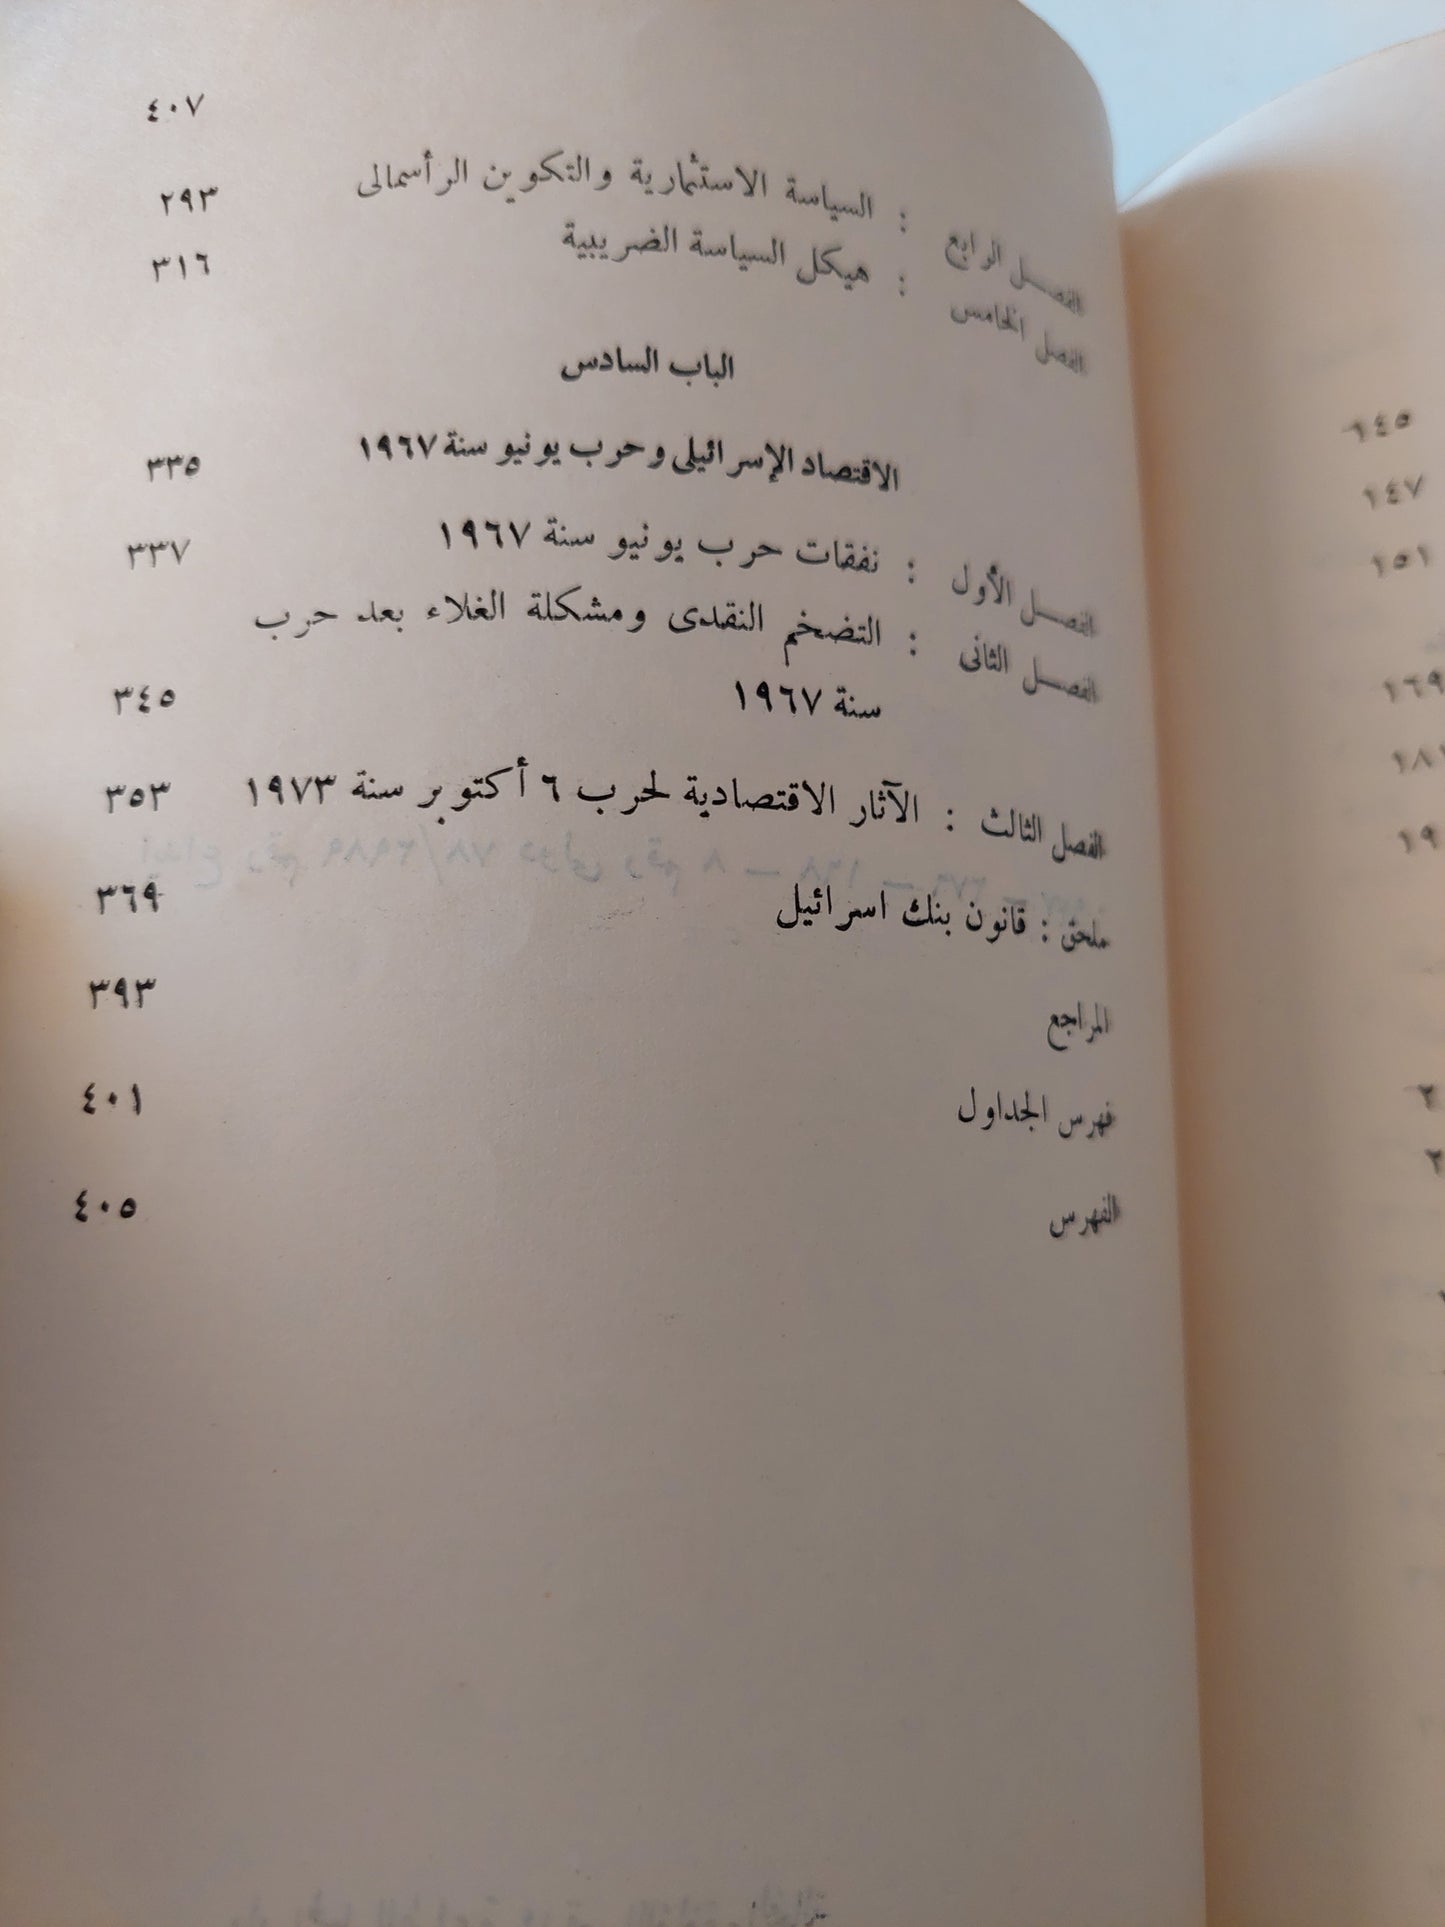 ٤٠٧
الفصل الرابع : السياسة الاستثمارية والتكوين الرأسمالى ٢٩٣
الفصل الخامس : هيكل السياسة الضريبية ٣١٦
الباب السادس
الاقتصاد الإسرائيلى وحرب يونيو سنة ١٩٦٧ ٣٣٥
الفصل الأول : نفقات حرب يونيو سنة ١٩٦٧ ٣٣٧
الفصل الثانى : التضخم النقدى ومشكلة الغلاء بعد حرب
سنة ١٩٦٧ ٣٤٥
الفصل الثالث : الآثار الاقتصادية لحرب ٦ أكتوبر سنة ١٩٧٣ ٣٥٣
ملحق : قانون بنك اسرائيل ٣٦٩
المراجع ٣٩٣
فهرس الجداول ٤٠١
الفهرس ٤٠٥
١٤٧
١٥١
١٦٩